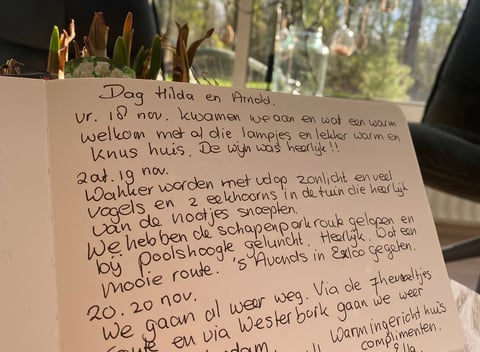 Dag Hilda en Arnold.
vr. 18 nov. kwamen we aan en wat een warm
welkom met al die lampjes en lekker warm en
knus huis. De wijn was heerlijk!!
zat. 19 nov.
Wakker worden met volop zonlicht en veel
vogels en 2 eekhoorns in de tuin die heerlijk
van de nootjes snoepten.
We hebben de schapenparkroute gelopen en
bij poolshoogte geluncht. Heerlijk. Wat een
mooie route. 's Avonds in Exloo gegeten.
zo. 20 nov.
We gaan al weer weg. Via de 7heuveltjes
route en via Westerbork gaan we weer
Warmingericht huis
complimenten.